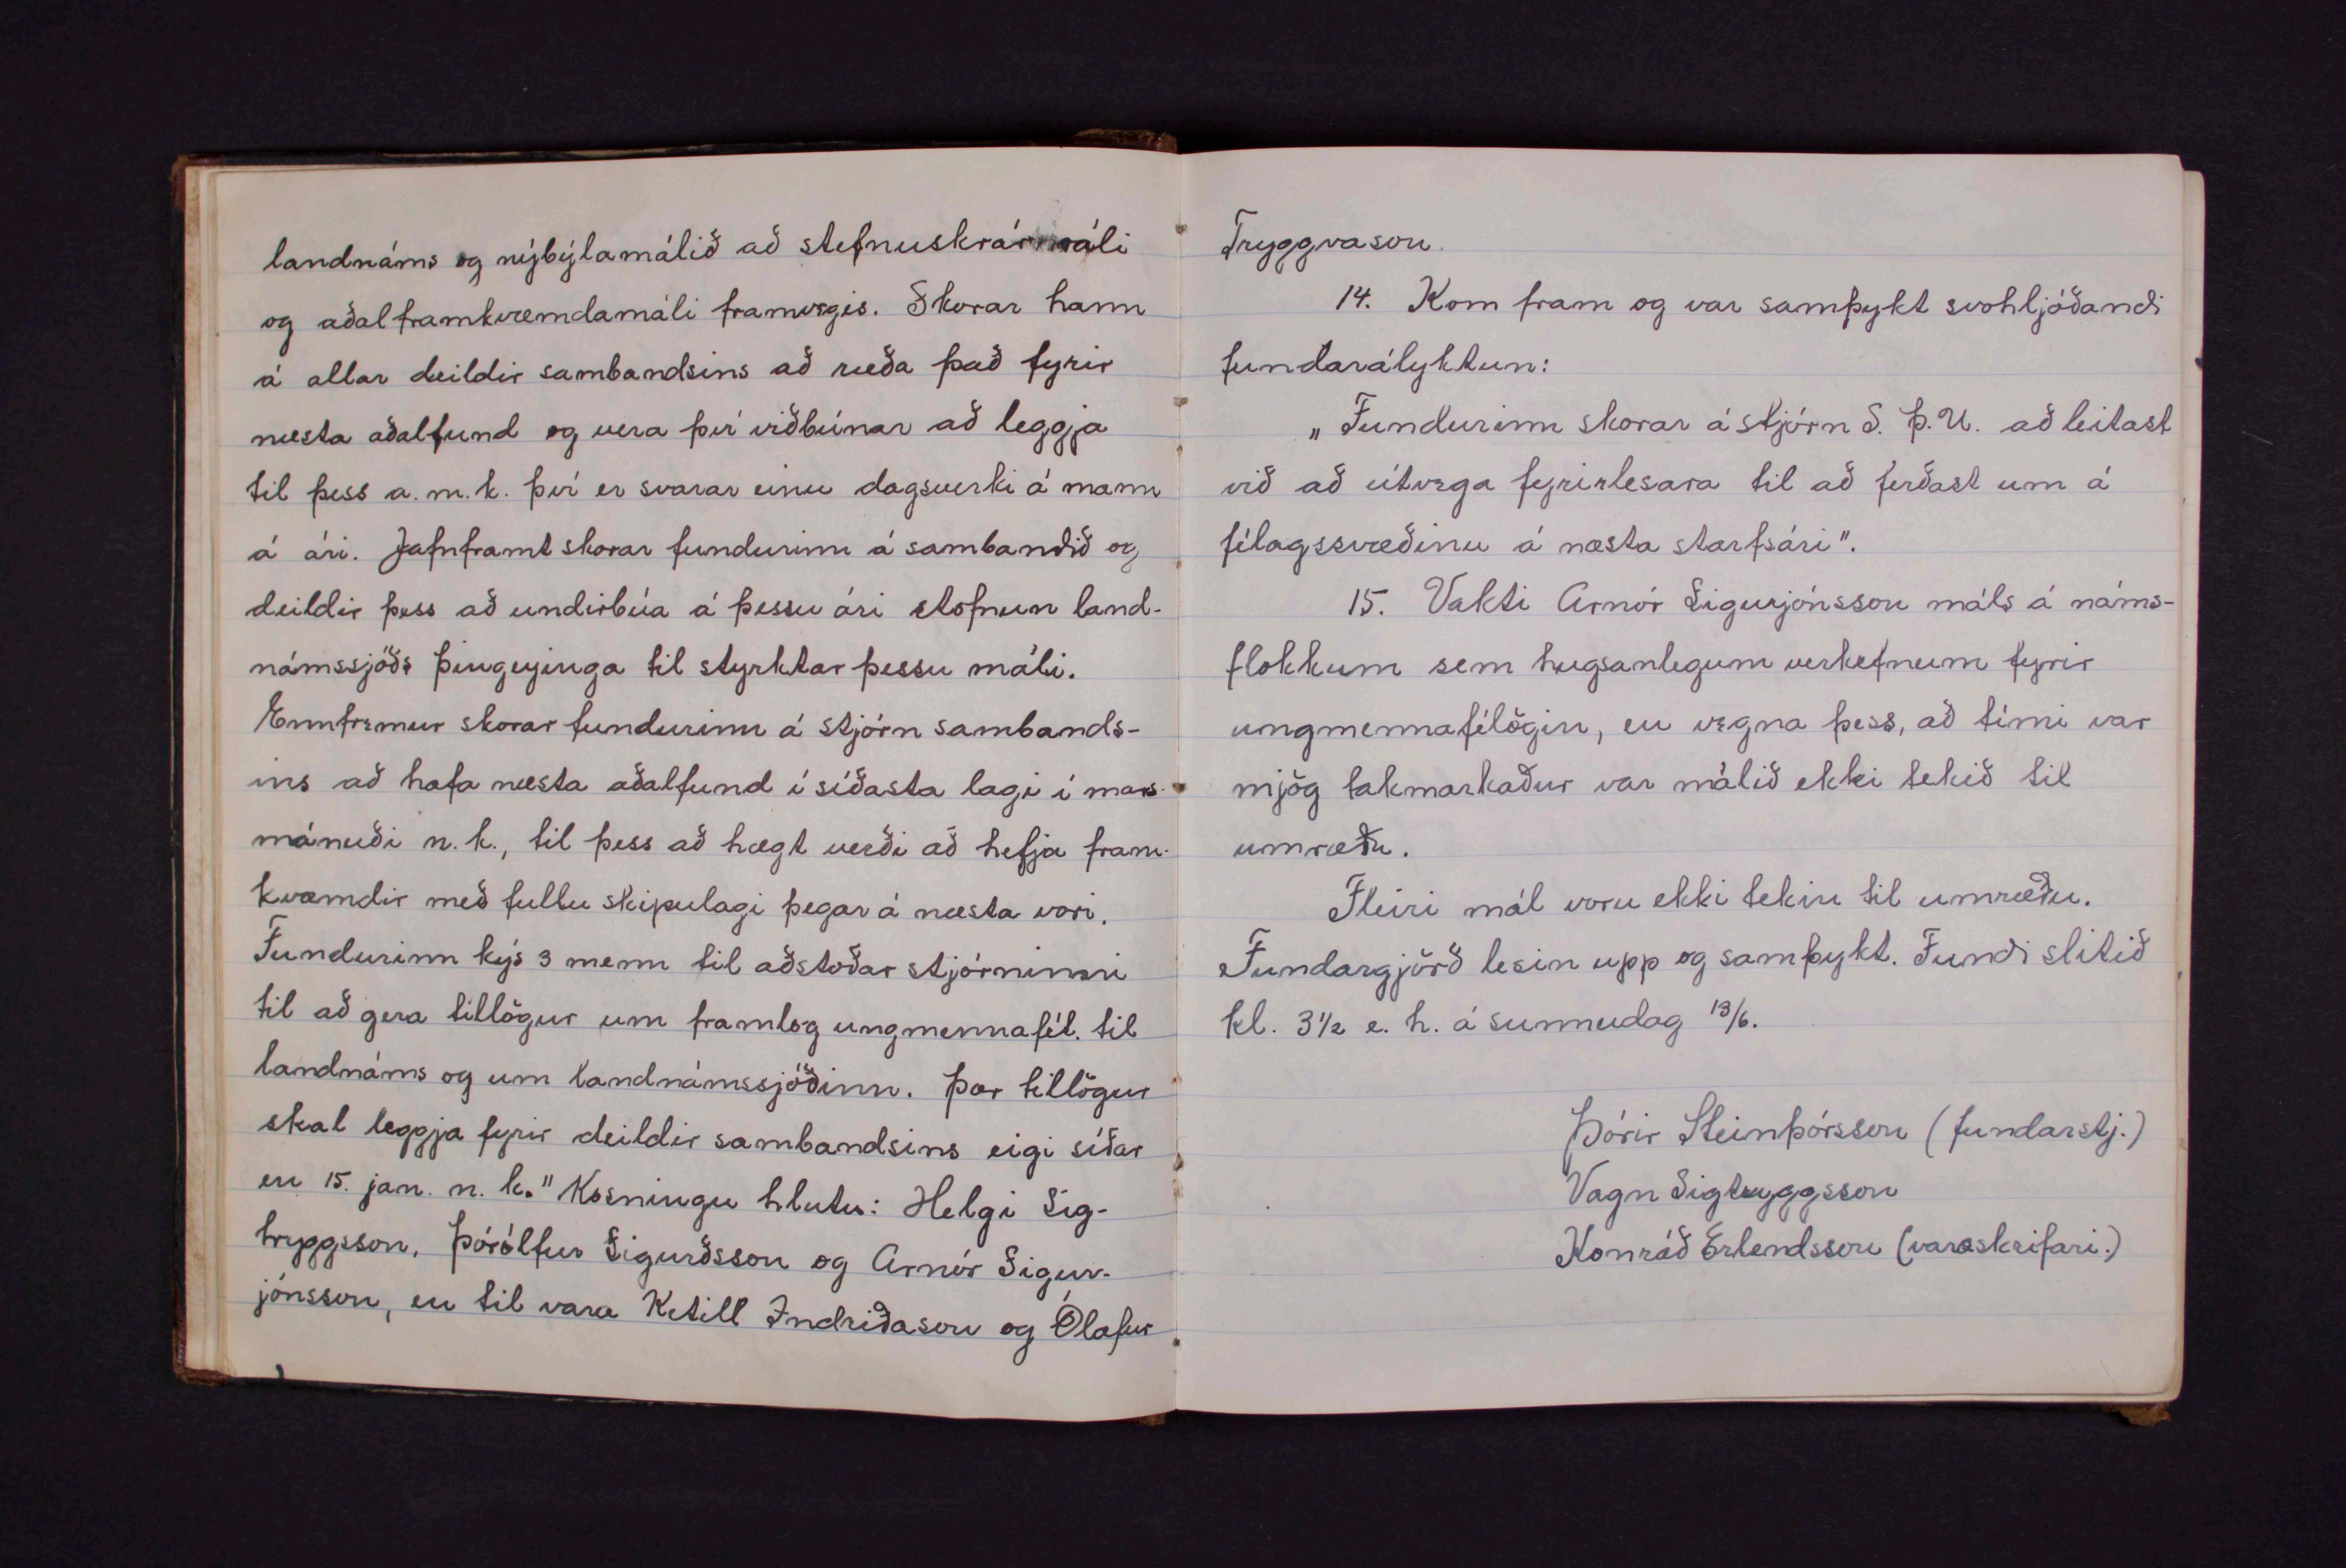 landnáms og nýbýlamálið að stefnuskrármáli
og aðalframkvæmdamáli framvegis. Skorar hann
á allar deildir sambandsins að ræða það fyrir
næsta aðalfund og vera því viðbúnar að leggja
til þess a. m. k. því er svarar einu dagsverki á mann
á ári. Jafnframt skorar fundurinn á sambandið og
deildir þess að undirbúa á þessu ári stofnun land-
námssjóðs Þingeyinga til styrktar þessu máli.
Ennfremur skorar fundurinn á stjórn sambands-
ins að hafa næsta aðalfund í síðasta lagi í mars-
mánuði n. k., til þess að hægt verði að hefja fram-
kvæmdir með fullu skipulagi þegar á næsta vori.
Fundurinn kýs 3 menn til aðstoðar stjórninni
til að gera tillögur um framlög ungmennafél. til
landnáms og um landnámssjóðinn. Þær tillögur
skal leggja fyrir deildir sambandsins eigi síðar
en 15. jan. n. k." Kosningu hlutu: Helgi Sig-
tryggsson, Þórólfur Sigurðsson og Arnór Sigur-
jónsson, en til vara Ketill Indriðason og Ólafur
Tryggvason.
14. Kom fram og var samþykt svohljóðandi
fundarályktun:
„Fundurinn skorar á stjórn S. Þ. U. að leitast
við að útvega fyrirlesara til að ferðast um á
félagssvæðinu á næsta starfsári".
15. Vakti Arnór Sigurjónsson máls á náms-
flokkum sem hugsanlegum verkefnum fyrir
ungmennafélögin, en vegna þess, að tími var
mjög takmarkaður var málið ekki tekið til
umræðu.
Fleiri mál voru ekki tekin til umræðu.
Fundargjörð lesin upp og samþykt. Fundi slitið
kl. 3½ e. h. á sunnudag 13/6.
Þórir Steinþórsson (fundarstj.)
Vagn Sigtryggsson
Konráð Erlendsson (varaskrifari.)